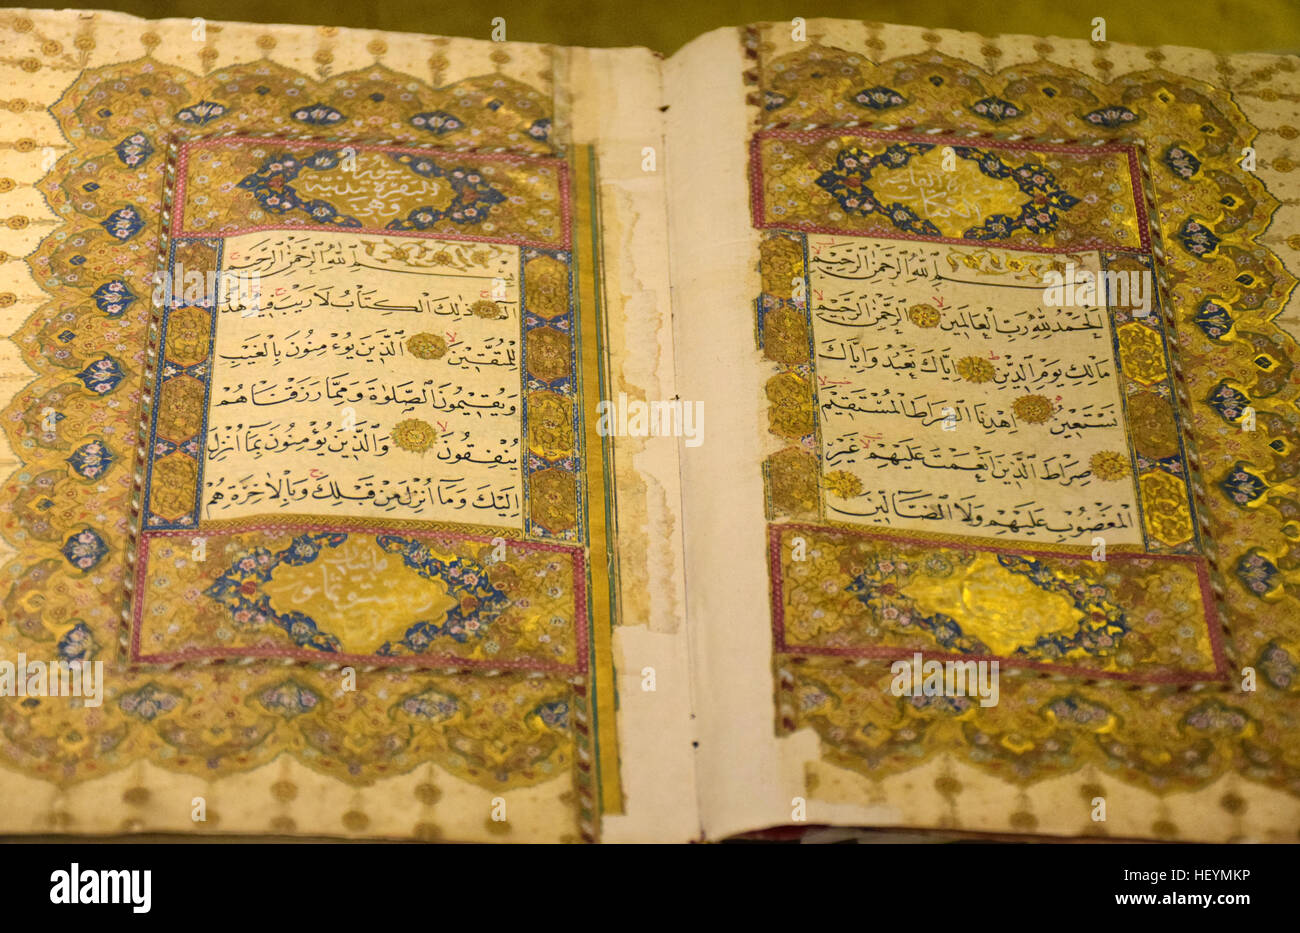 بسم الله الرحمن الرحيم
الحمد لله رب العالمين الرحمن الرحيم
مالك يوم الدين اياك نعبد واياك
نستعين اهدنا الصراط المستقيم
صراط الذين انعمت عليهم غير
المغضوب عليهم ولا الضالين
سورة
البقرة
وهي
بسم الله الرحمن الرحيم
الم ذلك الكتاب لا ريب فيه هدى
للمتقين الذين يؤمنون بالغيب
ويقيمون الصلوة ومما رزقناهم
ينفقون والذين يؤمنون بما انزل
اليك وما انزل من قبلك وبالاخرة هم
a alamy stock photo
HEYMKP
www.alamy.com